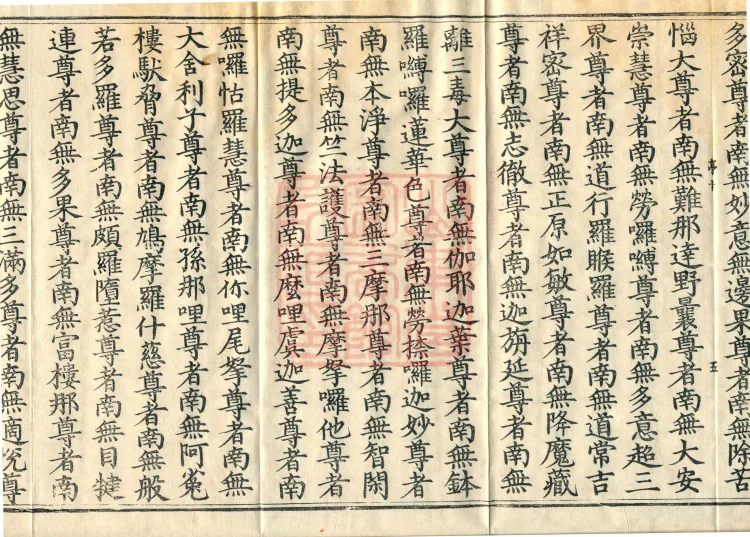 多密尊者南無妙意無邊果尊者南無除苦
惱大尊者南無難那達野曩尊者南無大安
崇慧尊者南無勞囉嚩尊者南無多意超三
界尊者南無道行羅睺羅尊者南無道常吉
祥密尊者南無正原如敏尊者南無降魔藏
尊者南無志徹尊者南無迦旃延尊者南無
離三毒大尊者南無伽耶迦葉尊者南無鉢
羅嚩囉蓮華色尊者南無勞捺囉迦妙尊者
南無本淨尊者南無三摩那尊者南無智閑
尊者南無竺法護尊者南無摩拏囉他尊者
南無提多迦尊者南無麼哩虞迦善尊者南
無囉怙羅慧尊者南無你哩尾拏尊者南無
大舍利子尊者南無孫那哩尊者南無阿㝹
樓馱脅尊者南無鳩摩羅什慈尊者南無般
若多羅尊者南無頗羅墮惹尊者南無目犍
連尊者南無多果尊者南無富樓那尊者南
無慧思尊者南無三滿多尊者南無適兊尊
五